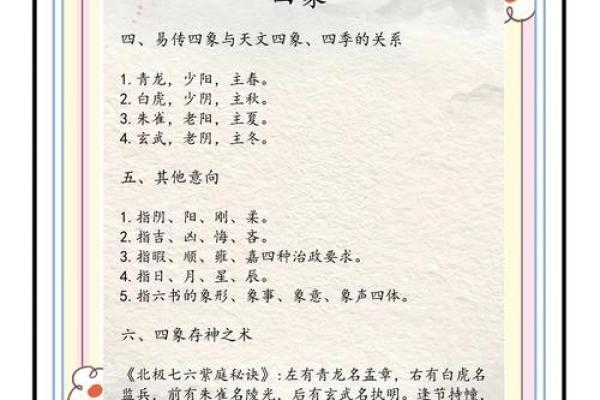 四象
四、易传四象与天文四象、四季的关系
1.青龙，少阳，主春。
2.白虎，少阴，主秋。
3.朱雀，老阳，主夏。
4.玄武，老阴，主冬。
五、其他意向
1.指阴、阳、刚、柔。
2.指吉、凶、悔、吝。
3.指暇、顺、雍、嘉四种治政要求。
4.指日、月、星、辰。
5.指六书的象形、象事、象意、象声四体。
六、四象存神之术
《北极七六紫庭秘诀》:左有青龙名孟章，右有白虎名
监兵，前有朱雀名陵光，后有玄武名执明。逢节持幢，